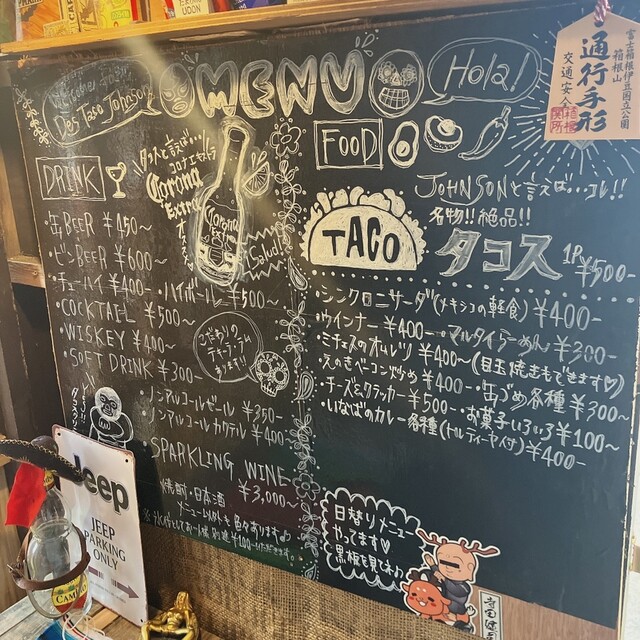 UDON
Des Taco Johnson
MENU
Hola!
富士箱根伊豆国立公園
箱根山
通行手形
交通安全
箱根
関所
DRINK
タコスと言えば…
コロナエキストラ
Corona
Extra
Corona
Extra
Salud!
缶BEER ¥450〜
ビンBEER ¥600〜
チューハイ ¥400- ハイボール ¥500〜
・COCKTAIL ¥500〜
・WISKEY ¥400〜
・SOFT DRINK ¥300〜
こだわりの
テキーラ・ラム
あります!!
・ノンアルコールビール ¥350-
・ノンアルコールカクテル ¥400-
SPARKLING WINE
¥3,000〜
焼酎・日本酒
メニュー以外も色々あります♪
FOOD
JOHNSONと言えば…コレ!!
名物!!絶品!!
TACO
タコス 1P ¥500-
・シンクロニサーダ(メキシコの軽食) ¥400-
・ウインナー ¥400- ・マルタイらーめん ¥300-
・ミチェスのオムレツ ¥400〜(目玉焼きもできます♡)
・えのきベーコン炒め ¥400- ・缶づめ各種 ¥300〜
・チーズ&クラッカー ¥500〜 ・お菓子いろいろ ¥100〜
・いなばのカレー各種(トルティーヤ付) ¥400-
日替りメニュー
やってます♡
黒板を見てネ♪
Jeep
JEEP
PARKING
ONLY